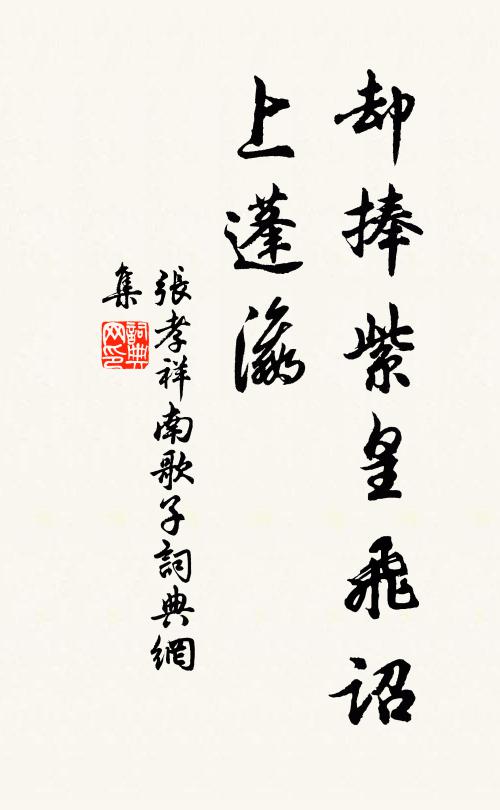 却捧紫皇飛詔
上蓬瀛
張孝祥南歌子詞典網
集
詞典网印